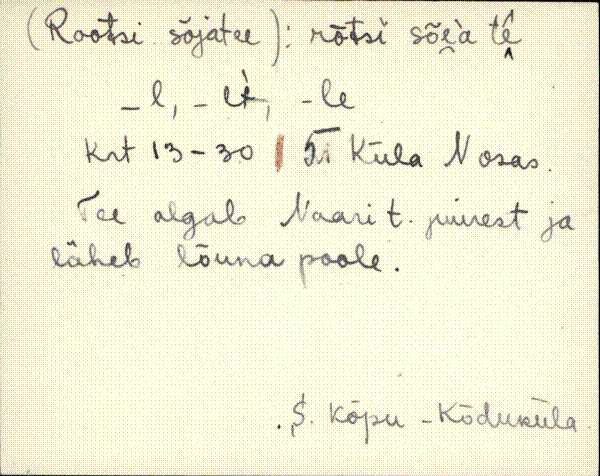 (Rootsi sõjatee): rōtsi sõi̯à tḗ
– l, – lt̀, – le
Krt 13–30 | Küla Nosas.
Tee algab Naari t. juurest ja
läheb lõuna poole.
Kõpu – Kõduküla